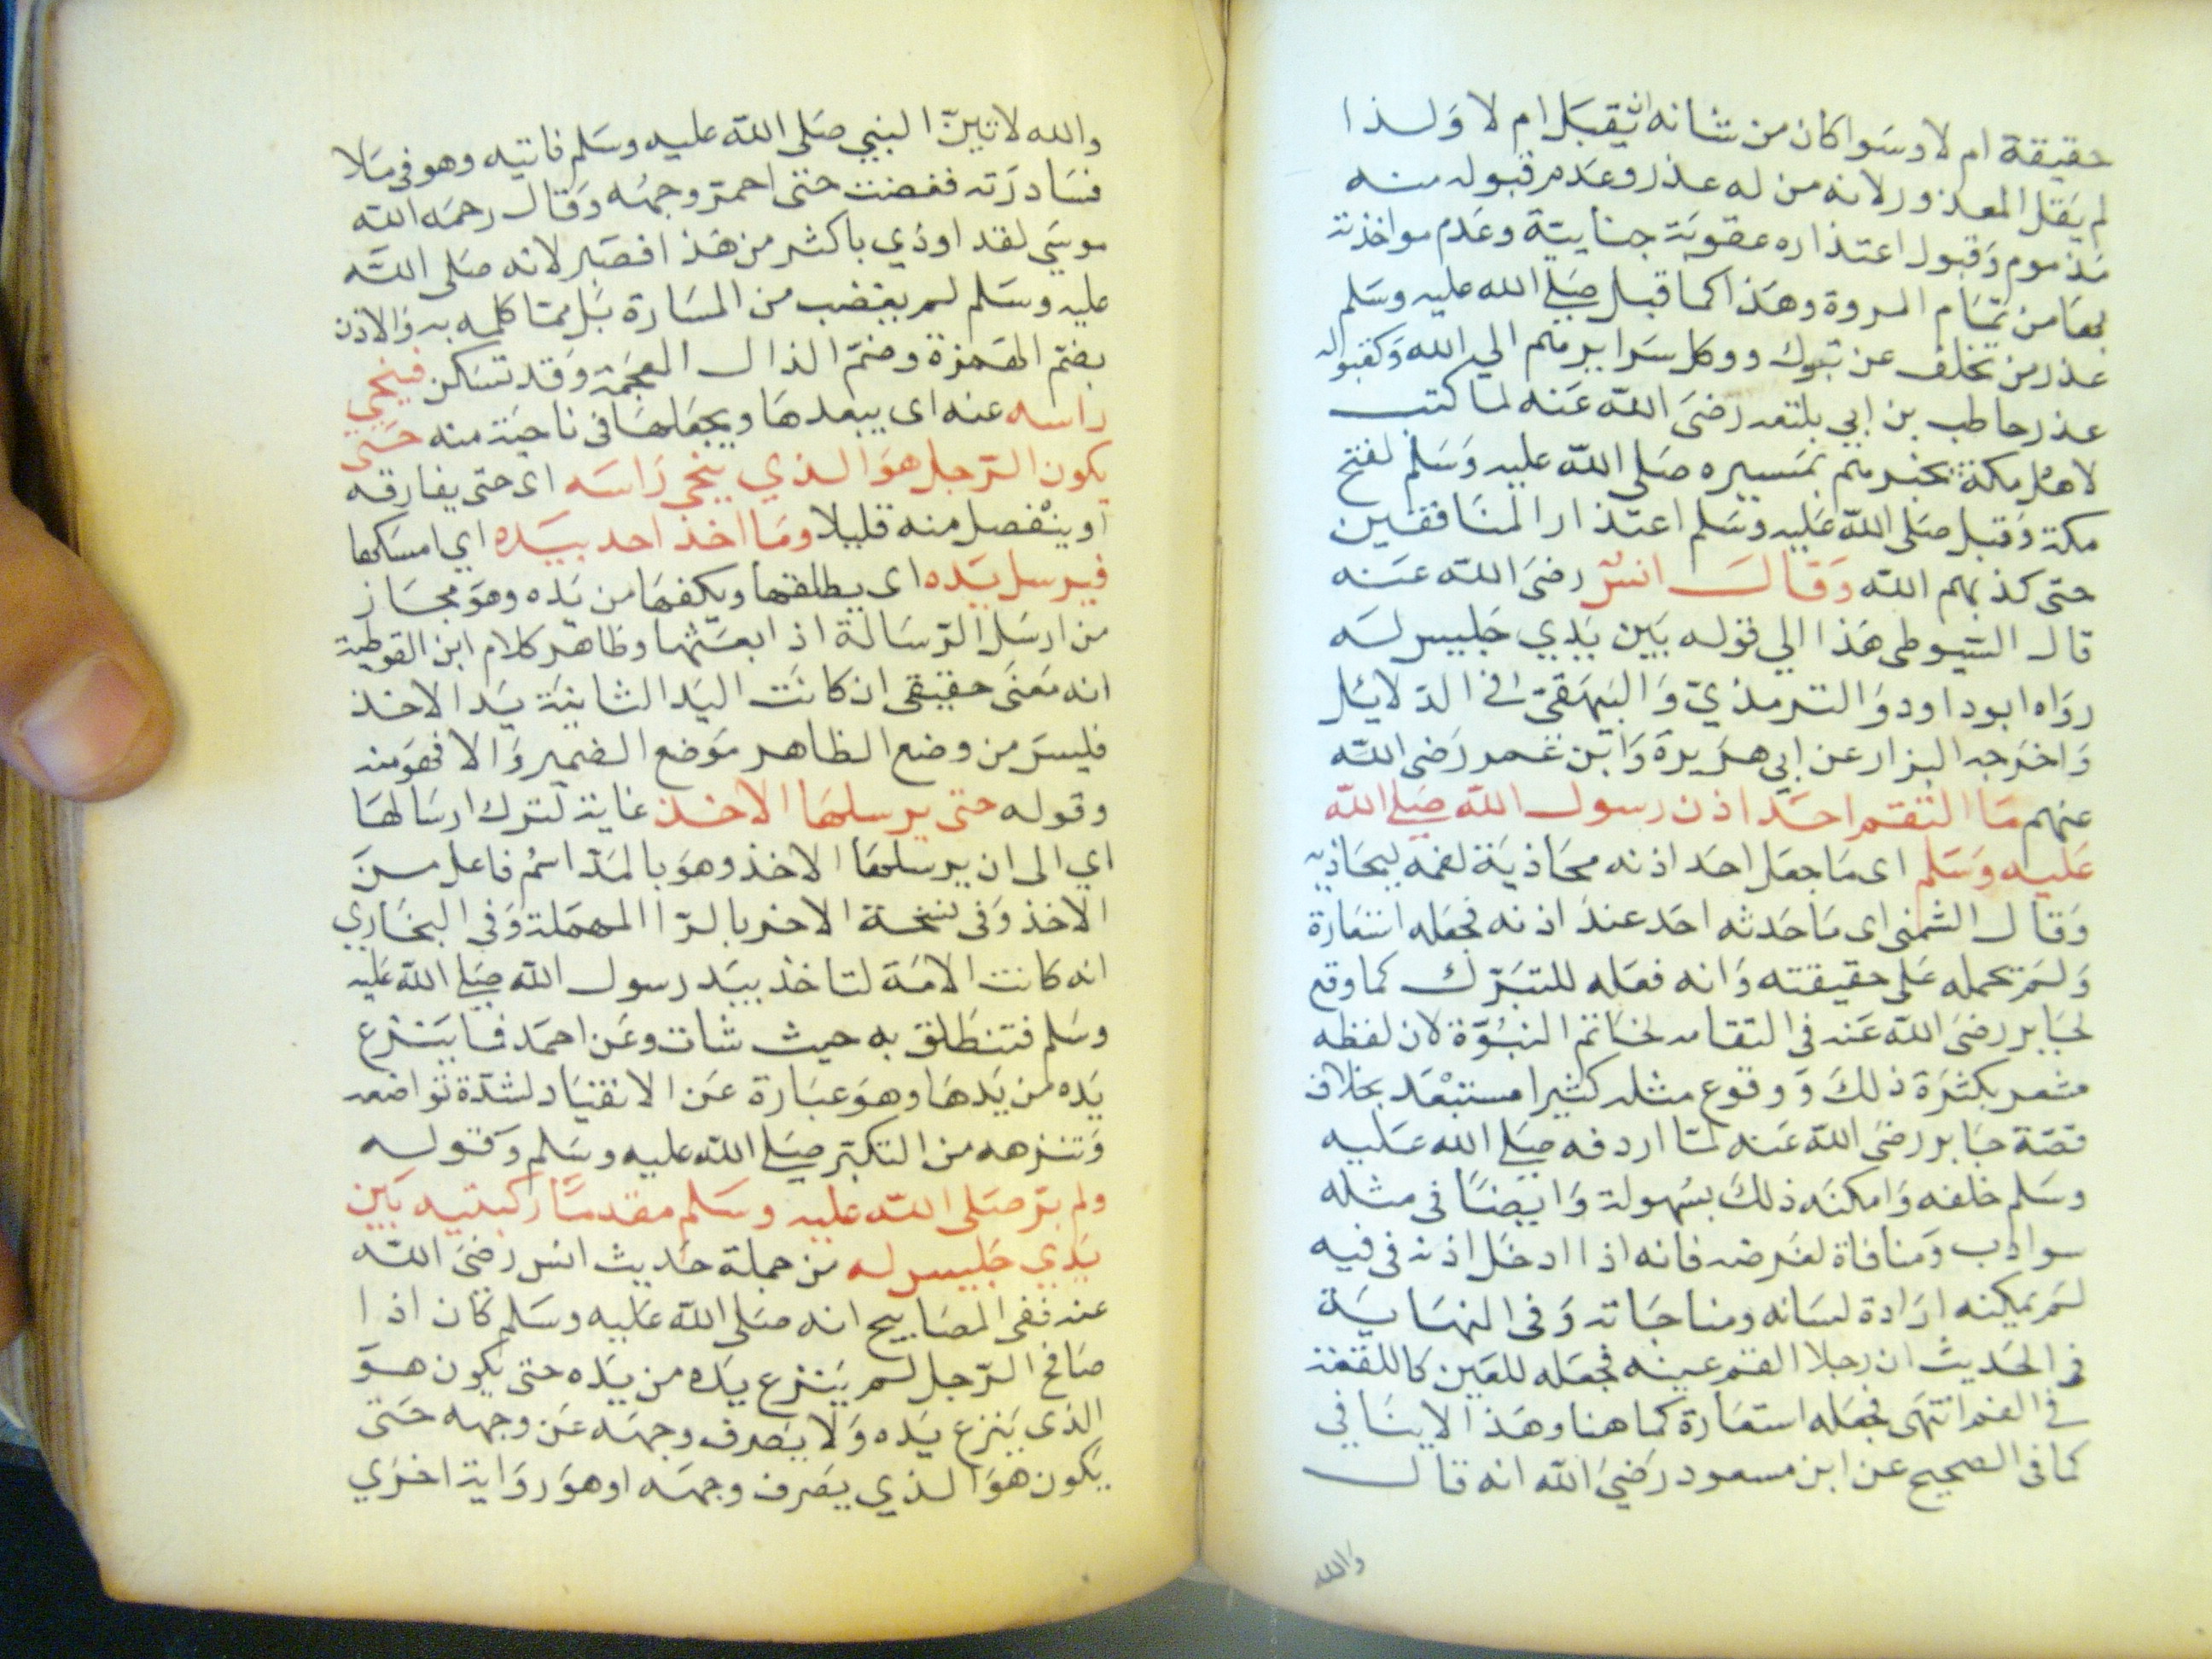 حقيقة ام لا وسوا كان من شانه ان يقبل ام لا ولذا
لم يقل المعذور لانه من له عذر وعدم قبوله منه
مذموم وقبول اعتذاره عقوبة جناية وعدم مواخذته
بها من تمام المروة وهذا كما قبل صلى الله عليه وسلم
عذر من تخلف عن تبوك ووكل سرايرهم الي الله وكقبوله
عذر حاطب بن ابي بلتعه رضي الله عنه لما كتب
لاهل مكة يخبرهم بمسيره صلى الله عليه وسلم لفتح
مكة وقبل صلى الله عليه وسلم اعتذار المنافقين
حتى كذبهم الله وقال انس رضي الله عنه
قال السيوطي هذا الي قوله بين يدي جليس له
رواه ابو داود والترمذي والبيهقي في الدلايل
واخرجه البزار عن ابي هريرة وابن عمر رضي الله
عنهم ما التقم احد اذن رسول الله صلى الله
عليه وسلم اى ما جعل احد اذنه محاذية لفمه ليحاذيه
وقال الشمني اى ما حدثه احد عند اذنه فجعله استعارة
ولم تحمله على حقيقته وانه فعله للتبرك كما وقع
لجابر رضي الله عنه في التقامه لخاتم النبوة لان لفظه
مشعر بكثرة ذلك و وقوع مثله كثيرا مستبعد بخلاف
قصة جابر رضي الله عنه لما اردفه صلى الله عليه
وسلم خلفه وامكنه ذلك بسهولة وايضا في مثله
سوادب ومنافاة لغرضه فانه اذا ادخل اذنه في فيه
لم يمكنه ارادة لسانه ومناجاته وفي النهاية
في الحديث ان رجلا القم عينه فجعله للعين كاللقمة
في الفم انتهى فجعله استعارة كما هنا وهذا لا ينافي
كما في الصحيح عن ابن مسعود رضي الله انه قال
والله
والله لاتين النبي صلى الله عليه وسلم فاتيته وهو في ملا
فساررته فغضب حتى احمر وجهه وقال رحمه الله
موسي لقد اوذي باكثر من هذا فصبر لانه صلى الله
عليه وسلم لم يغضب من المسارة بل مما كلمه به والاذن
بضم الهمزة وضم الذال المعجمة وقد تسكن فينحي
راسه عنه اى يبعدها ويجعلها في ناحية منه حتى
يكون الرجل هو الذي ينحي راسه اى حتى يفارقه
او ينفصل منه قليلا وما اخذ احد بيده اي امسكها
فيرسل يده اى يطلقها ويكفها من يده وهو مجاز
من ارسل الرسالة اذا بعثها وظاهر كلام ابن القوطية
انه معنى حقيقي ان كانت اليد الثانية يد الاخذ
فليس من وضع الظاهر موضع الضمير والا فهو منه
وقوله حتى يرسلها الاخذ غاية لترك ارسالها
اي الى ان يرسلها الاخذ وهو بالمد اسم فاعل من
الاخذ وفي نسخة الاخر بالرا المهملة وفي البخاري
انه كانت الامة لتاخذ بيد رسول الله صلى الله عليه
وسلم فتنطلق به حيث شات وعن احمد فما ينزع
يده من يدها وهو عبارة عن الانقياد لشدة تواضعه
وتنزهه من التكبر صلى الله عليه وسلم وقوله
ولم ير صلى الله عليه وسلم مقدما ركبتيه بين
يدي جليس له من جملة حديث انس رضي الله
عنه ففي المصابيح انه صلى الله عليه وسلم كان اذا
صافح الرجل لم ينزع يده من يده حتى يكون هو
الذى ينزع يده ولا يصرف وجهه عن وجهه حتى
يكون هو الذي يصرف وجهه او هو رواية اخري